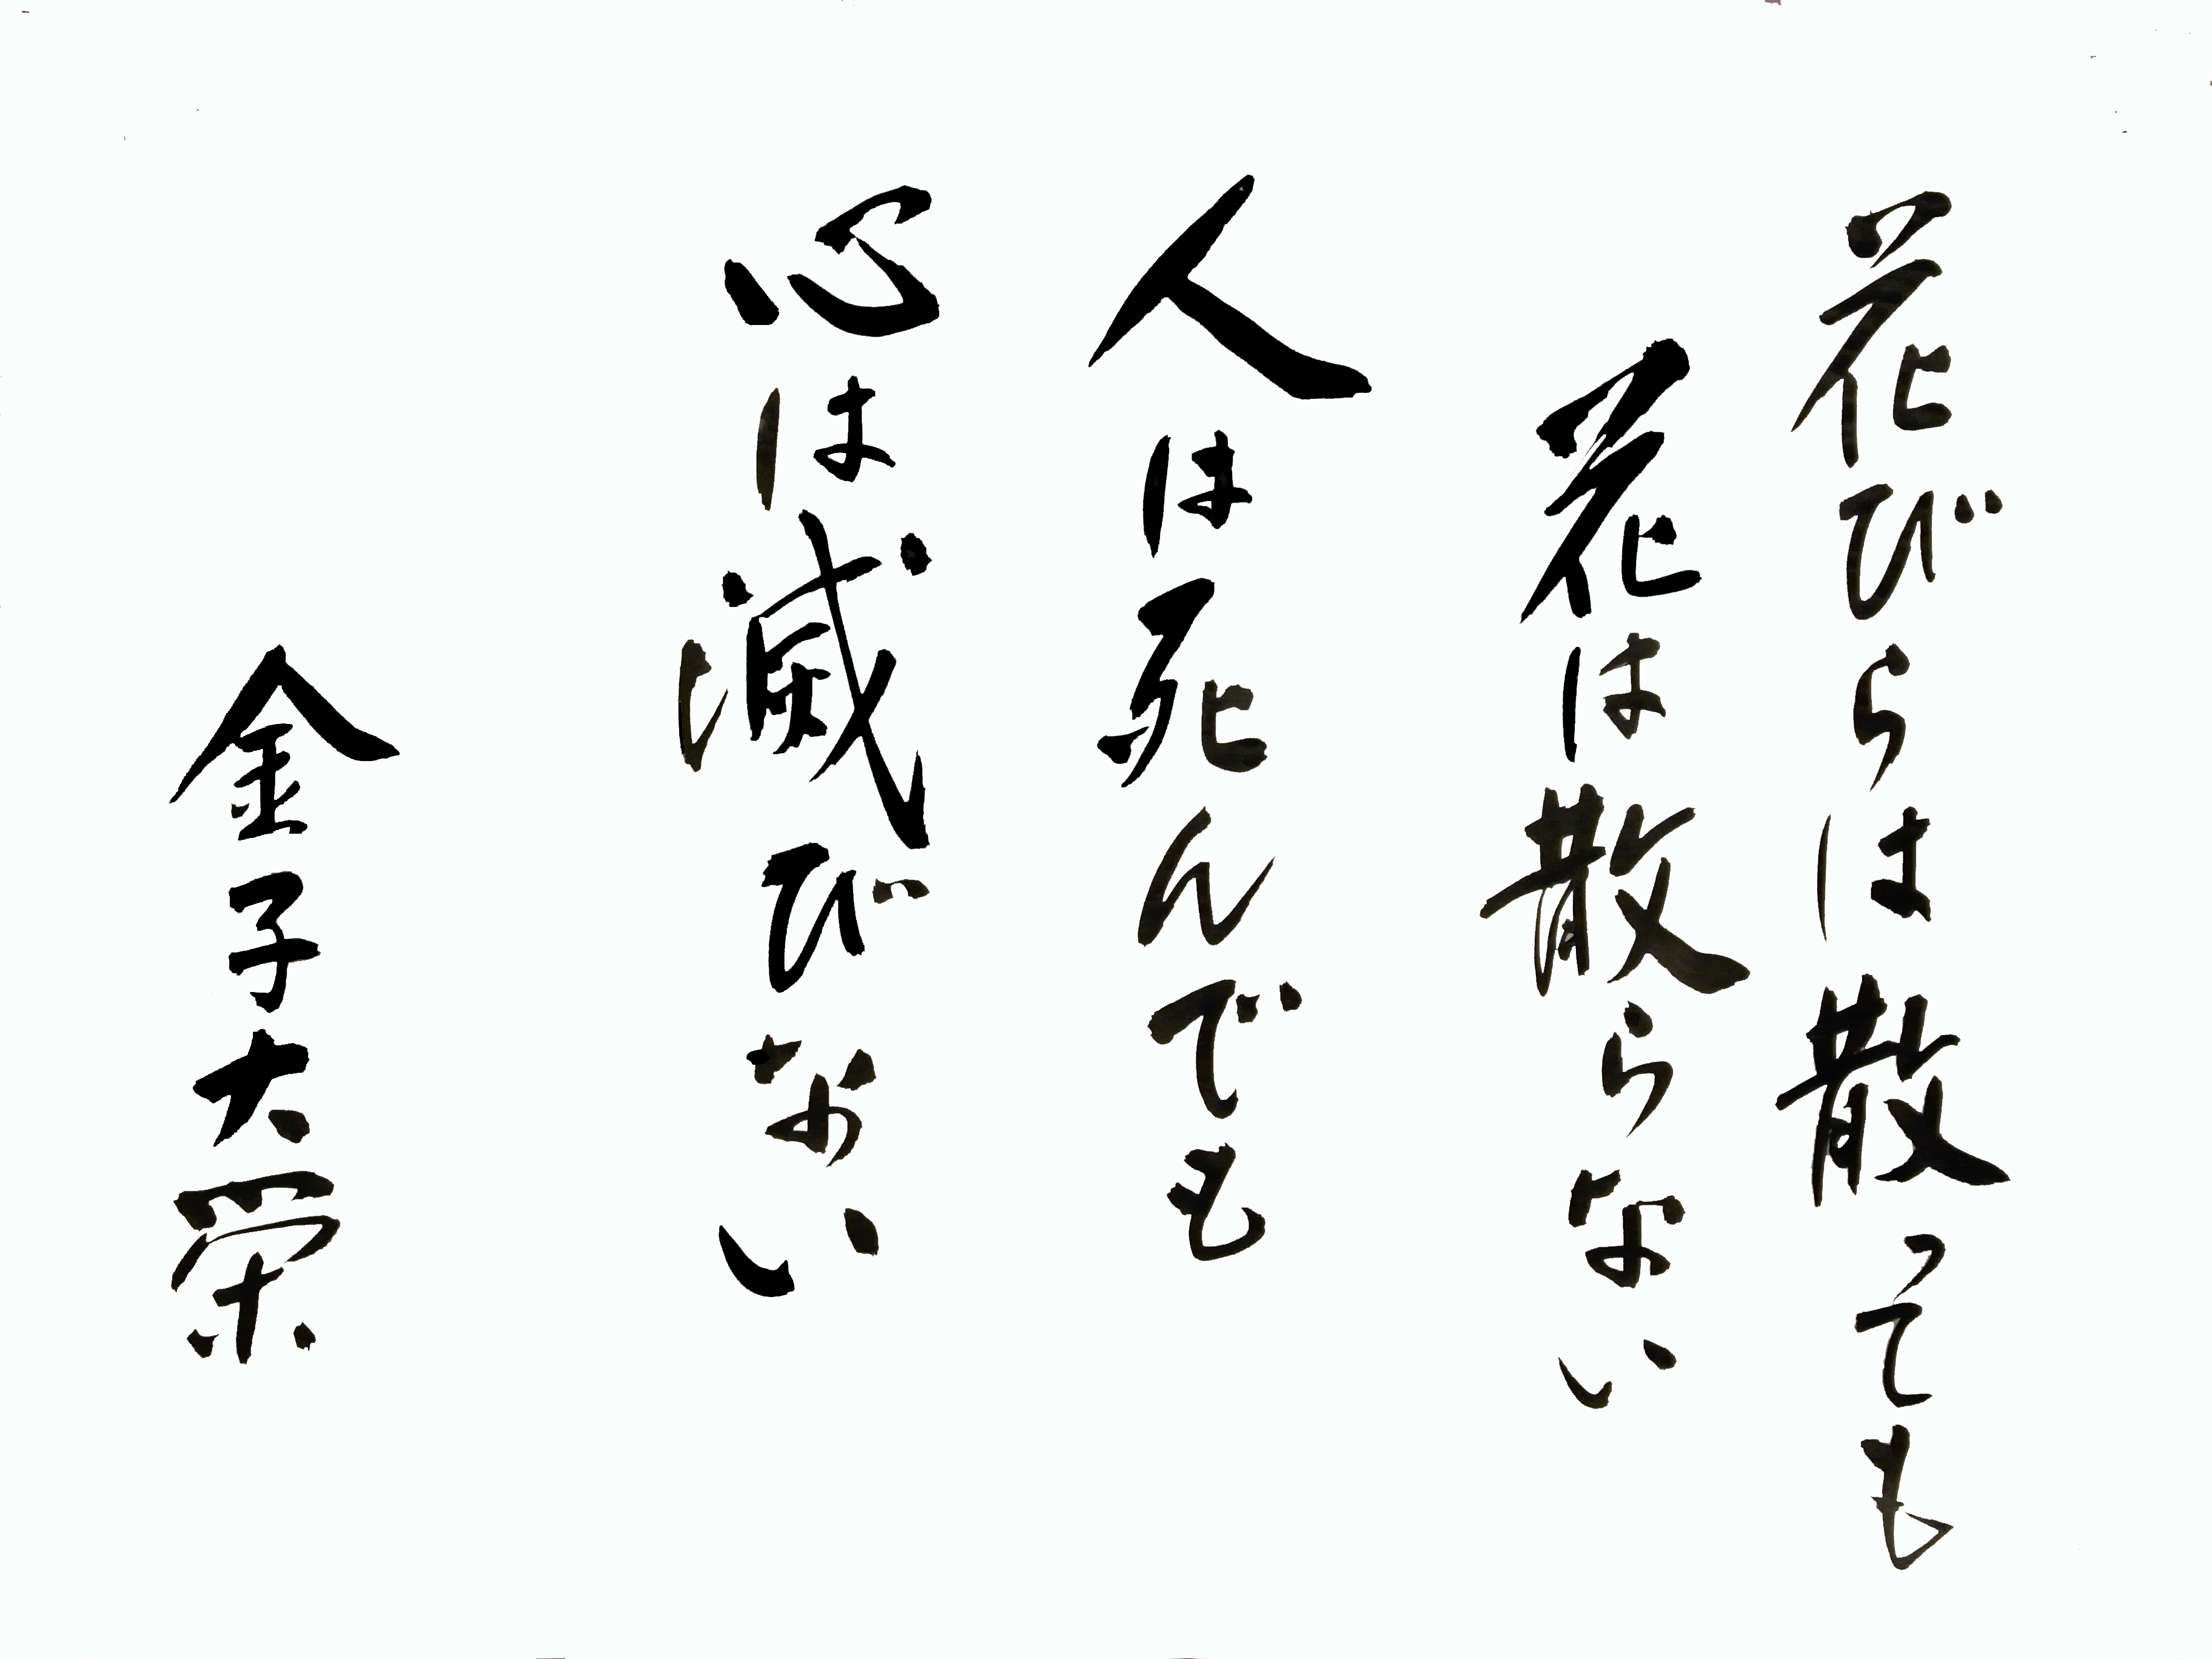 花びらは散っても
花は散らない
人は死んでも
心は滅びない
金子大栄